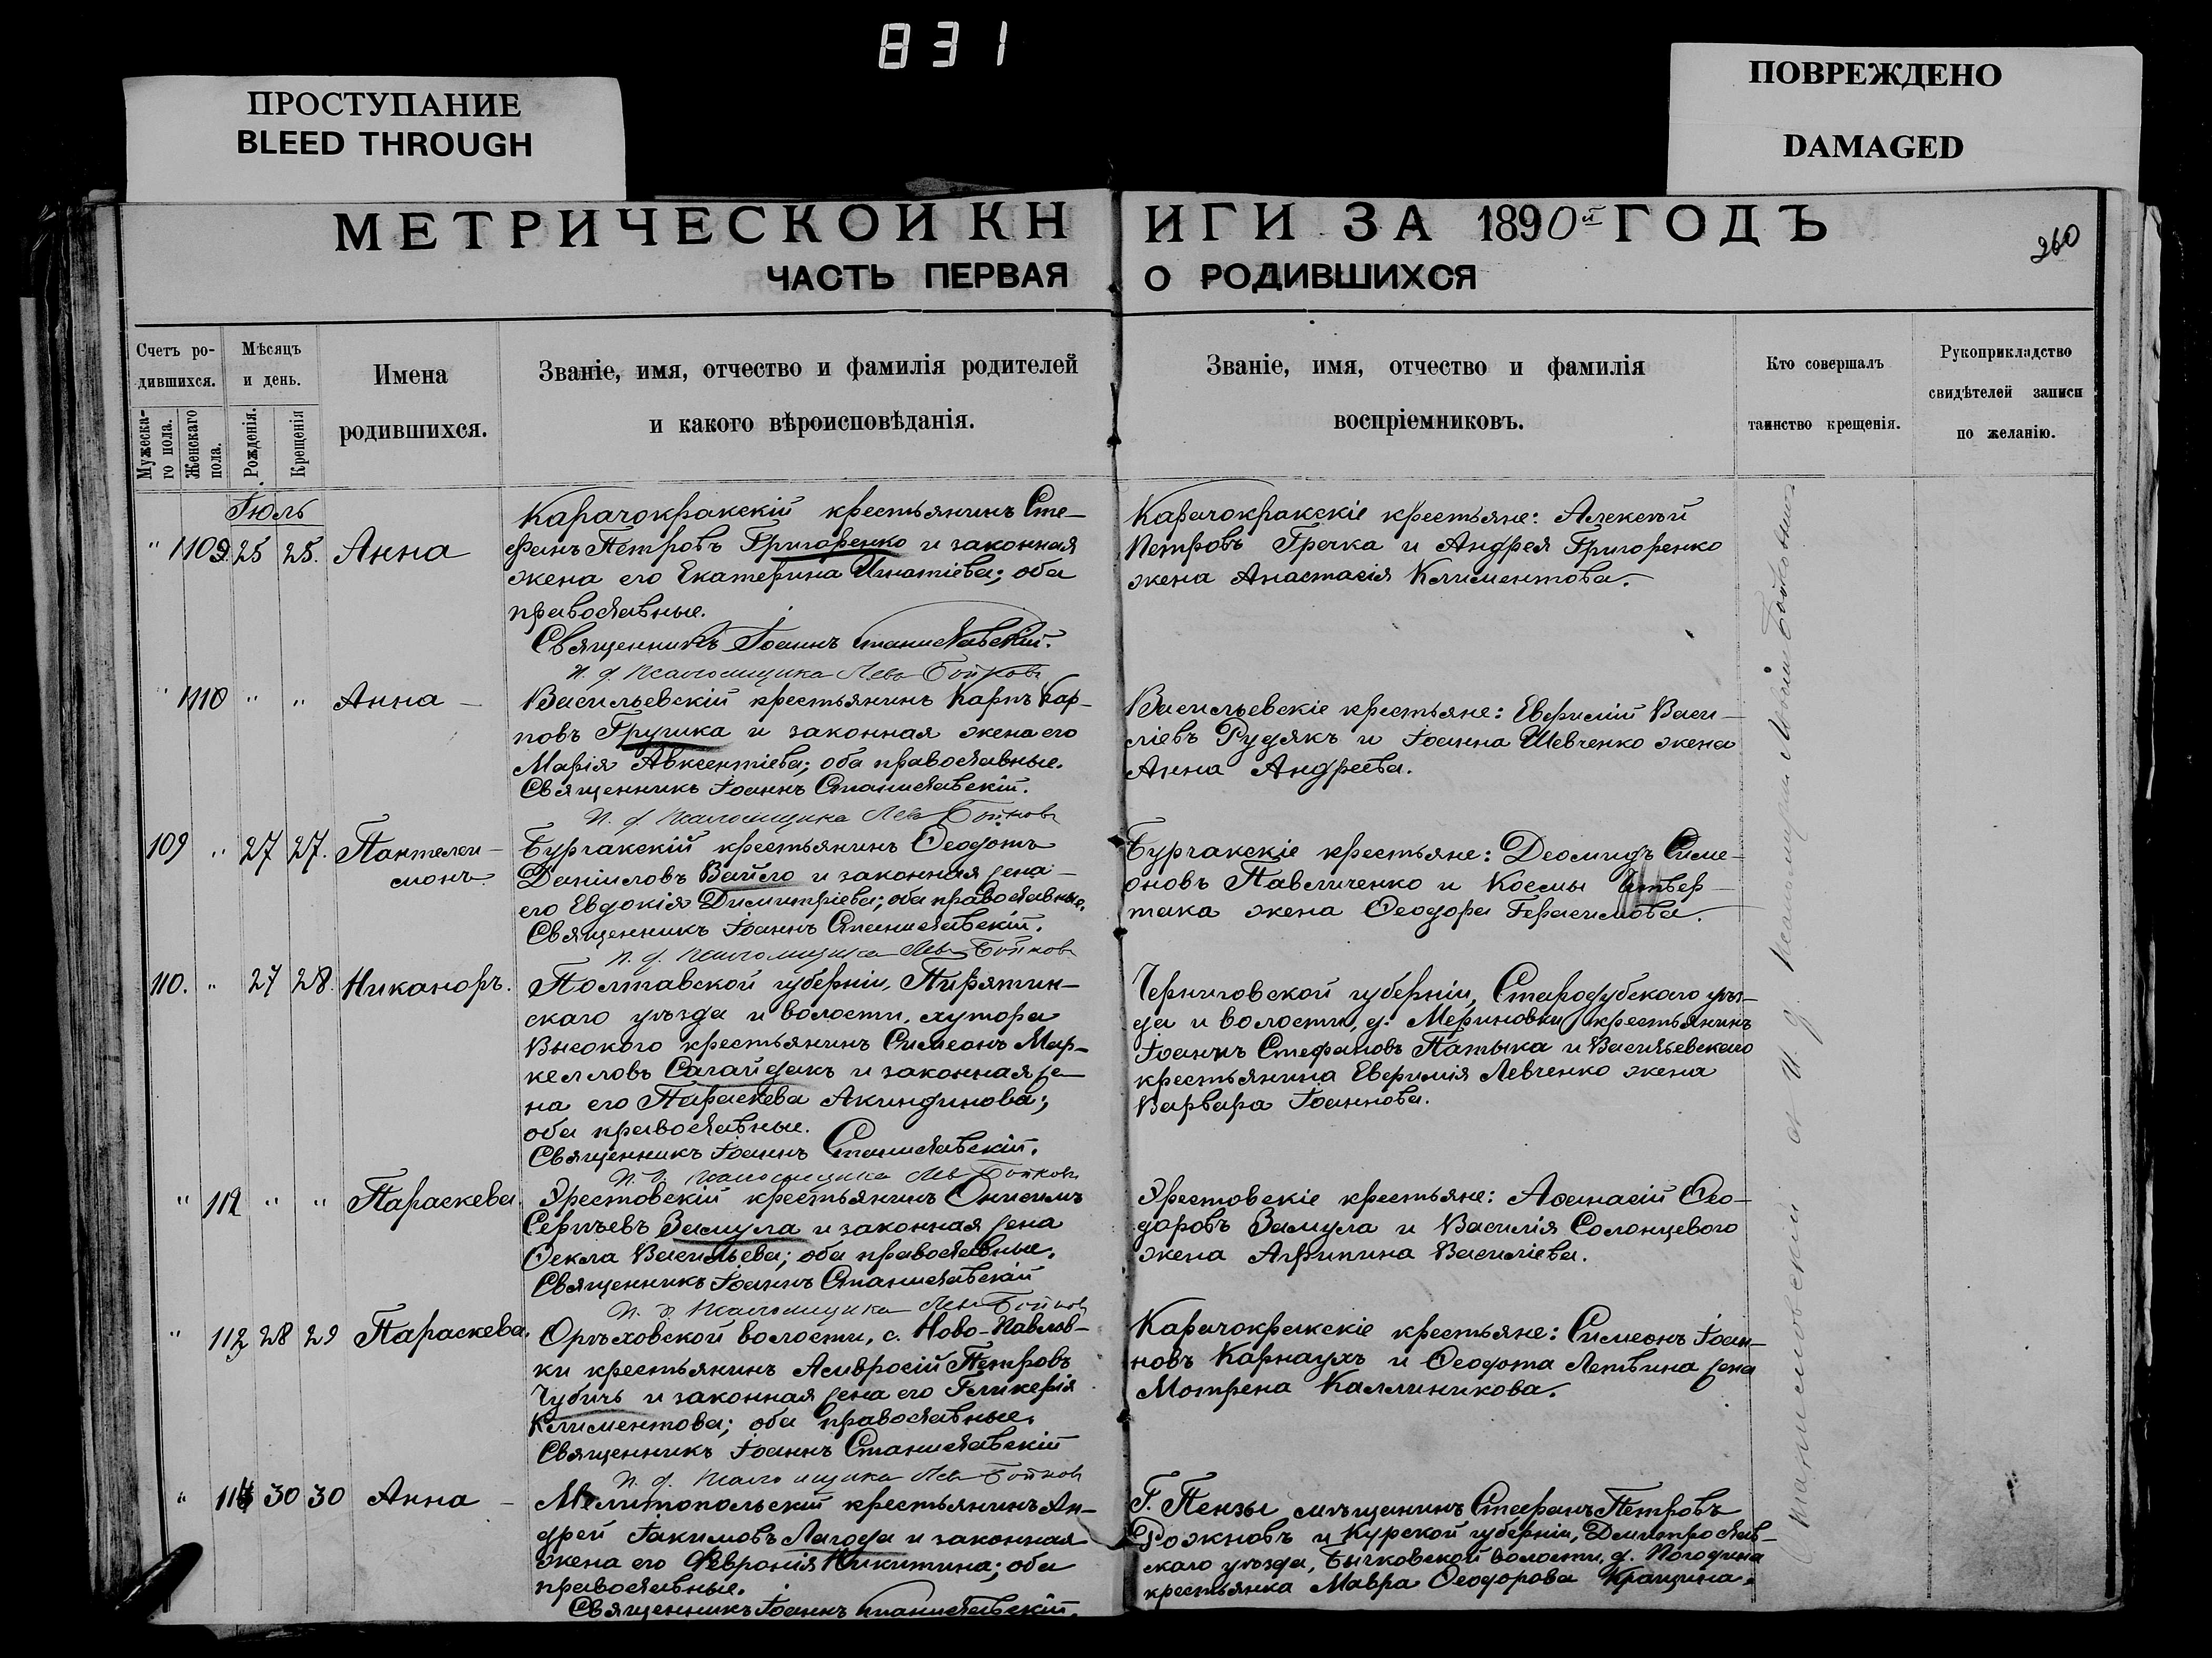 831
ПРОСТУПАНИЕ
BLEED THROUGH
ПОВРЕЖДЕНО
DAMAGED
МЕТРИЧЕСКОЙ КНИГИ ЗА 1890й ГОДЪ
260
ЧАСТЬ ПЕРВАЯ О РОДИВШИХСЯ
Счетъ ро-
дившихся.
Мужеска-
го пола.
Женскаго
пола.
Мѣсяцъ
и день.
Рожденія.
Крещенія
Имена
родившихся.
Званіе, имя, отчество и фамилія родителей
и какого вѣроисповѣданія.
Званіе, имя, отчество и фамилія
воспріемниковъ.
Кто совершалъ
таинство крещенія.
Рукоприкладство
свидѣтелей записи
по желанію.
Іюль
" 109. 25 25. Анна
Карачокракскій крестьянинъ Сте-
фанъ Петровъ Григоренко и законная
жена его Екатерина Игнатіева; оба
православные.
Священникъ Іоаннъ Станиславскій.
И. д. псаломщика Левъ Бойковъ
Карачокракскіе крестьяне: Алексѣй
Петровъ Гречка и Андрея Григоренко
жена Анастасія Климентова.
" 110 " " Анна
Васильевскій крестьянинъ Карпъ Кар-
повъ Грушка и законная жена его
Марія Авксентіева; оба православные.
Священникъ Іоаннъ Станиславскій.
И. д. псаломщика Левъ Бойковъ
Васильевскіе крестьяне: Евфимій Васи-
ліевъ Рудякъ и Іоанна Шевченко жена
Анна Андреева.
109 " 27 27. Пантелеи-
монъ.
Бурчакскій крестьянинъ Ѳеодотъ
Даніиловъ Вайло и законная жена
его Евдокія Димитріева; оба православные.
Священникъ Іоаннъ Станиславскій.
И. д. псаломщика Левъ Бойковъ
Бурчакскіе крестьяне: Деомидъ Симе-
оновъ Павличенко и Космы
така жена Ѳеодора Герасимова.
110. " 27 28. Никаноръ.
Полтавской губерніи, Пирятин-
скаго уѣзда и волости, хутора
Высокого крестьянинъ Симеонъ Мар-
келловъ Сагайдакъ и законная же-
на его Параскева Акиндинова;
оба православные.
Священникъ Іоаннъ Станиславскій.
И. д. псаломщика Левъ Бойковъ
Черниговской губерніи, Стародубскаго уѣз-
да и волости, д. Мериновки крестьянинъ
Іоаннъ Стефановъ Патыка и Васильевскаго
крестьянина Евфимія Левченко жена
Варвара Іоаннова.
" 111 " " Параскева.
Эрестовскій крестьянинъ Онисимъ
Сергѣевъ Замула и законная жена
Ѳекла Васильева; оба православные.
Священникъ Іоаннъ Станиславскій
И. д. псаломщика Левъ Бойковъ
Эрестовскіе крестьяне: Аѳанасій Ѳео-
доровъ Замула и Василія Солонцевого
жена Агрипина Василіева.
" 112 28 29 Параскева.
Орѣховской волости, с. Ново-Павлов-
ки крестьянинъ Амвросій Петровъ
Чубичъ и законная жена его Гликерія
Климентова; оба православные.
Священникъ Іоаннъ Станиславскій
И. д. псаломщика Левъ Бойковъ
Карачокракскіе крестьяне: Симеонъ Іоан-
новъ Карнаухъ и Ѳеодота Летвина жена
Мотрена Каллиникова.
" 113 30 30 Анна
Мелитопольскій крестьянинъ Ан-
дрей Іакимовъ Лагода и законная
жена его Февронія Никитина; оба
православные.
Священникъ Іоаннъ Станиславскій.
Г. Пензы мѣщанинъ Стефанъ Петровъ
Рожновъ и Курской губерніи, Дмитрослав-
скаго уѣзда, Бычковской волости, д. Погодина
крестьянка Мавра Ѳеодорова
Станиславскій съ И. д. псаломщика Львомъ Бойковымъ